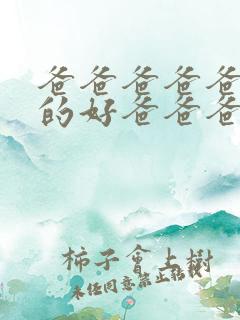 爸爸爸爸爸
的好爸爸爸
柿子會上樹
未經同意禁止轉載